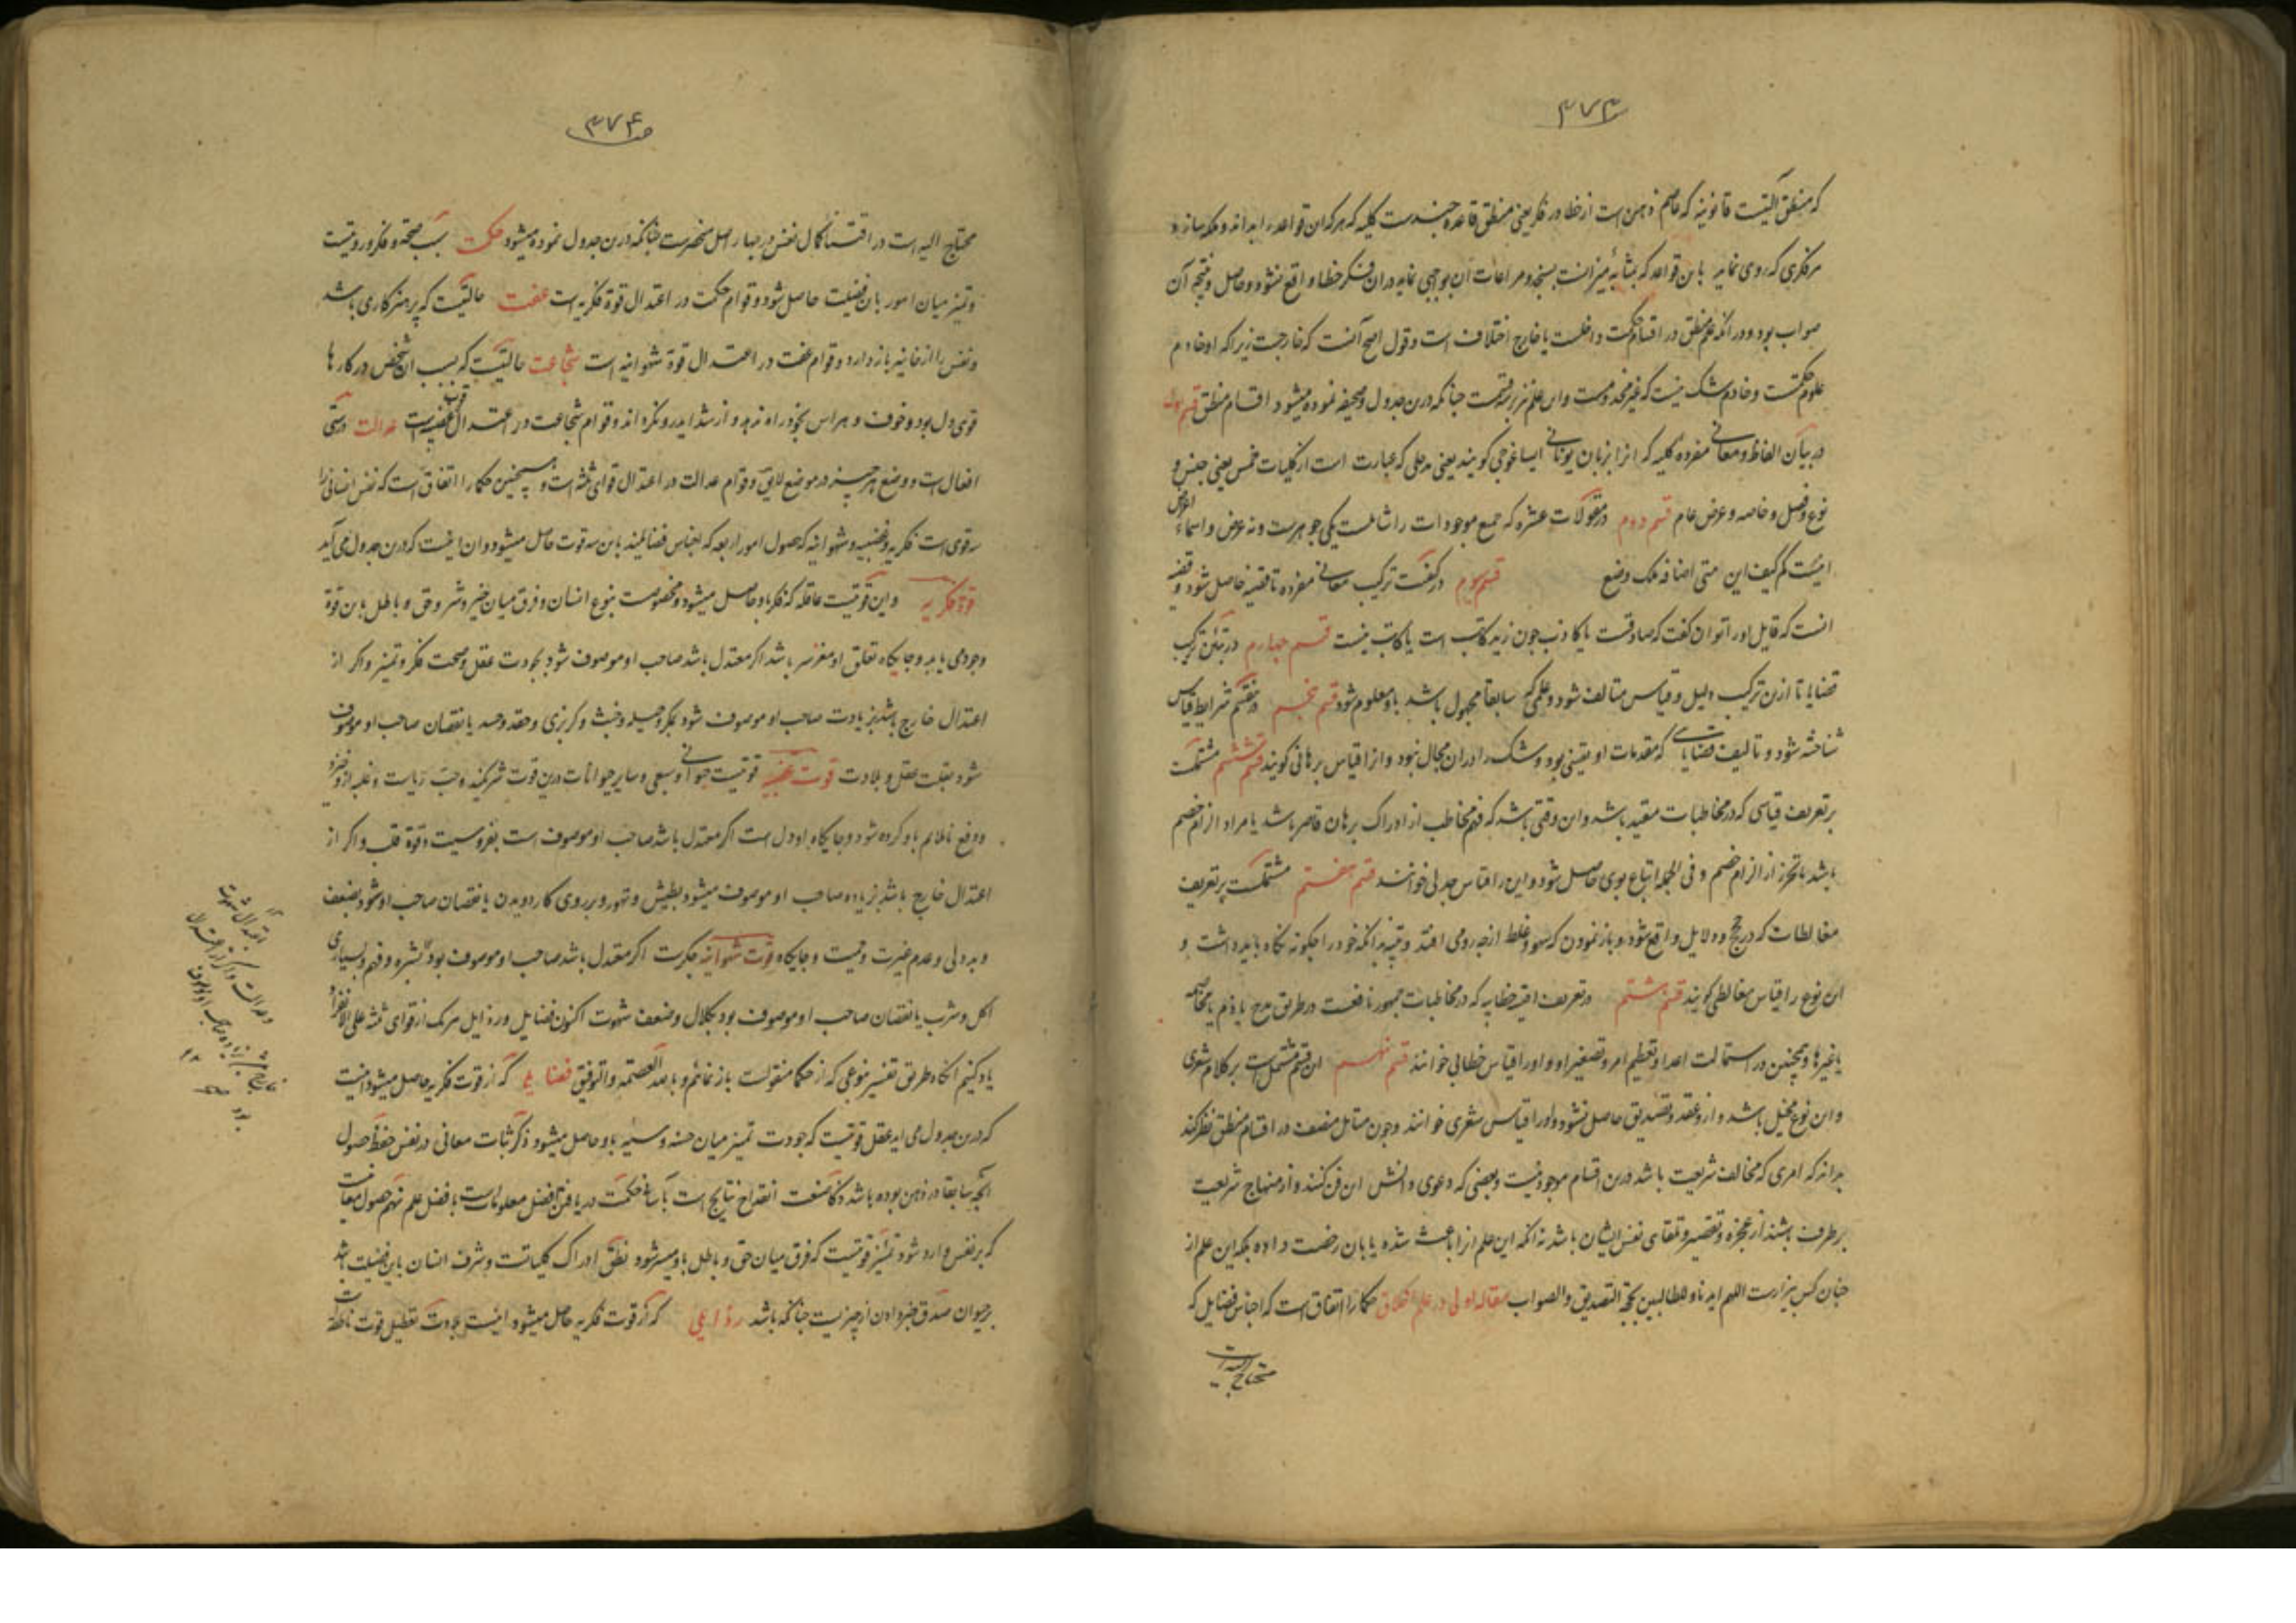 ۳۷۳
که منطق آلتیست قانونیه که عاصم ذهن است از خطا در فکر یعنی منطق قاعده چندست کلیه که هرکه آن قواعد را بداند و ملکه سازد و
هر فکری که روی نماید باین قواعد که بمثابهٔ میزانست بسنجد و مراعات آن بواجبی نماید در آن فکر خطا واقع نشود و حاصل و نتیجه آن
صواب بود و در آنکه علم منطق در اقسام حکمت داخلست یا خارج اختلاف است و قول اصح آنست که خارجست زیراکه او خادم
علوم حکمتست و خادم شک نیست که غیر مخدومست و این علم نیز بر نه قسمت چنانکه درین جدول و صحیفه نموده میشود اقسام منطق قسم اول
در بیان الفاظ و معانی مفرده کلیه که آنرا بزبان یونانی ایساغوجی گویند یعنی مدخلی که عبارت است از کلیات خمس یعنی جنس و
نوع و فصل و خاصه و عرض عام قسم دوم در مقولات عشره که جمیع موجودات را شاملست یکی جوهرست و نه عرض و اسماء اعراض
اینست کم کیف این متی اضافه ملک وضع قسم سوم در کیفیت ترکیب معانی مفرده تا قضیه حاصل شود و قضیه
آنست که قایل او را توان گفت که صادقست یا کاذب چون زید کاتب است یا کاتب نیست قسم چهارم در تبیین ترکیب
قضایا تا ازین ترکیب دلیل و قیاس متالف شود و علمی که سابقا مجهول باشد باو معلوم شود قسم پنجم شرایط قیاس
شناخته شود و تالیف قضایایی که مقدمات او یقینی بود و شک را در آن مجال نبود و آنرا قیاس برهانی گویند قسم ششم مشتملست
بر تعریف قیاسی که در مخاطبات مفید باشد و این وقتی باشد که فهم مخاطب از ادراک برهان قاصر باشد یا مراد الزام خصم
باشد یا تحرز از الزام خصم و فی الجمله اتباع بوی حاصل شود و این را قیاس جدلی خوانند قسم هفتم مشتملست بر تعریف
مغالطات که در حجج و دلایل واقع شود و باز نمودن که سهو و غلط از چه رو می افتد و تنبیه بدانکه خود را چگونه نگاه باید داشت و
این نوع را قیاس مغالطی گویند قسم هشتم در تعریف اقیسه خطابیه که در مخاطبات جمهور نافعست در طریق مدح یا ذم یا مخاصمه
یا غیرها و همچنین در استمالت اعدا و تعظیم امر و تصغیر او و او را قیاس خطابی خوانند قسم نهم این قسم مشتمل است بر کلام شعری
و این نوع مخیل باشد و ازو عقد و تصدیق حاصل نشود و او را قیاس شعری خوانند و چون متامل منصف در اقسام منطق نظر کند
بداند که امری که مخالف شریعت باشد درین اقسام موجود نیست و بعضی که دعوی دانش این فن کنند و از منهاج شریعت
برطرف باشند از عجزه و تقصیر و تلقای نفس ایشان باشد نه آنکه این علم آنرا باعث شده یا بآن رخصت داده بلکه این علم از
چنان کس بیزارست اللهم ایدنا و للطالبین بحجة التصدیق و الصواب مقاله اولی در علم اخلاق حکما را اتفاق است که اجناس فضایل که
محتاج الیه است
۳۷۴
محتاج الیه است در اقتنا کمال نفس در چهار اصل منحصرست چنانکه درین جدول نموده میشود حکمت بسبب صحت و فکر و رویتست
و تمیز میان امور باین فضیلت حاصل شود و قوام حکمت در اعتدال قوة فکریه است عفت حالتیست که پرهیزکاری باشد
و نفس را از خانیه باز دارد و قوام عفت در اعتدال قوة شهوانیه است شجاعت حالتیست که بسبب آن شخص در کارها
قوی دل بود و خوف و هراس بخود راه ندهد و از شداید رو نگرداند و قوام شجاعت در اعتدال قوت غضبیه است عدالت راستی
افعال است و وضع هر چیز در موضع لایق و قوام عدالت در اعتدال قوای ثلثه است و همچنین حکما را اتفاق است که نفس انسانی را
سه قوی است فکریه و غضبیه و شهوانیه که حصول امور اربعه که اجناس فضایلند باین سه قوت حاصل میشود و آن اینست که درین جدول می آید
قوة فکریه و این قوتیست عاقله که فکر باو حاصل میشود و مخصوصست بنوع انسان و فرق میان خیر و شر و حق و باطل باین قوة
وجود می یابد و جایگاه تعلق او مغز سر باشد اگر معتدل باشد صاحب او موصوف شود بجودت عقل و صحت فکر و تمیز و اگر از
اعتدال خارج باشد بزیادت صاحب او موصوف شود بمکر و حیله و خبث و گربزی و حقد و حسد یا نقصان صاحب او موصوف
شود بقلت عقل و بلادت قوت غضبیه قوتیست حیوانی و سبعی و سایر حیوانات درین قوت شریکند و حب ریاست و غلبه ازو خیزد
و دفع ناملایم باو کرده شود و جایگاه او دل است اگر معتدل باشد صاحب او موصوف است بفروسیت و قوة قلب و اگر از
اعتدال خارج باشد بزیاده صاحب او موصوف میشود بطیش و تهور و بر روی کار دویدن یا نقصان صاحب او شود بضعف
و بددلی و عدم غیرت و حمیت و جایگاه قوت شهوانیه جگرست اگر معتدل باشد صاحب او موصوف بود بشره و فهم و بسیاری
اکل و شرب یا نقصان صاحب او موصوف بود بکلال و ضعف شهوت اکنون فضایل و رذایل هر یک از قوای ثلثه علی الانفراد
یاد کنیم آنگاه بطریق تفسیر نوعی که از حکما منقولست باز نمائیم و بالله العصمة و التوفیق فضایلی که از قوت فکریه حاصل میشود اینست
که درین جدول می آید عقل قوتیست که جودت تمیز میان حسنه و سیئه باو حاصل میشود ذکر ثبات معانی در نفس حفظ حصول
آنچه سابقا در ذهن بوده باشد ذکا صنعت انقداح نتایج است بآسانی حکمت دریافتن افضل معلومات است بافضل علم فهم حصول معانیست
که بر نفس وارد شود تمییز قوتیست که فرق میان حق و باطل باو میسر شود نطق ادراک کلیاتست و شرف انسان باین فضیلت باشد
بر حیوان صدق خبر دادن از چیزیست چنانکه باشد رذایلی که از قوت فکریه حاصل میشود اینست بلادت تعطیل قوت ناطقه است